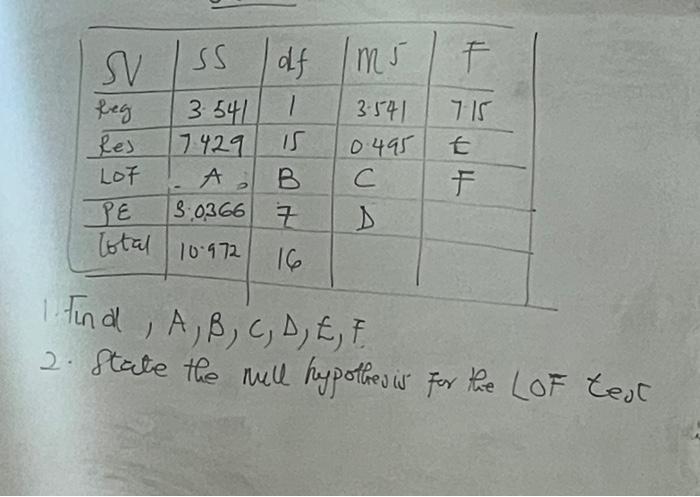 SV SS df MS F
Reg 3.541 1 3.541 7.15
Res 7.429 15 0.495 E
LOF A B C F
PE 3.0366 7 D
Total 10.972 16
1. Find, A, B, C, D, E, F.
2. State the null hypothesis For the LOF test